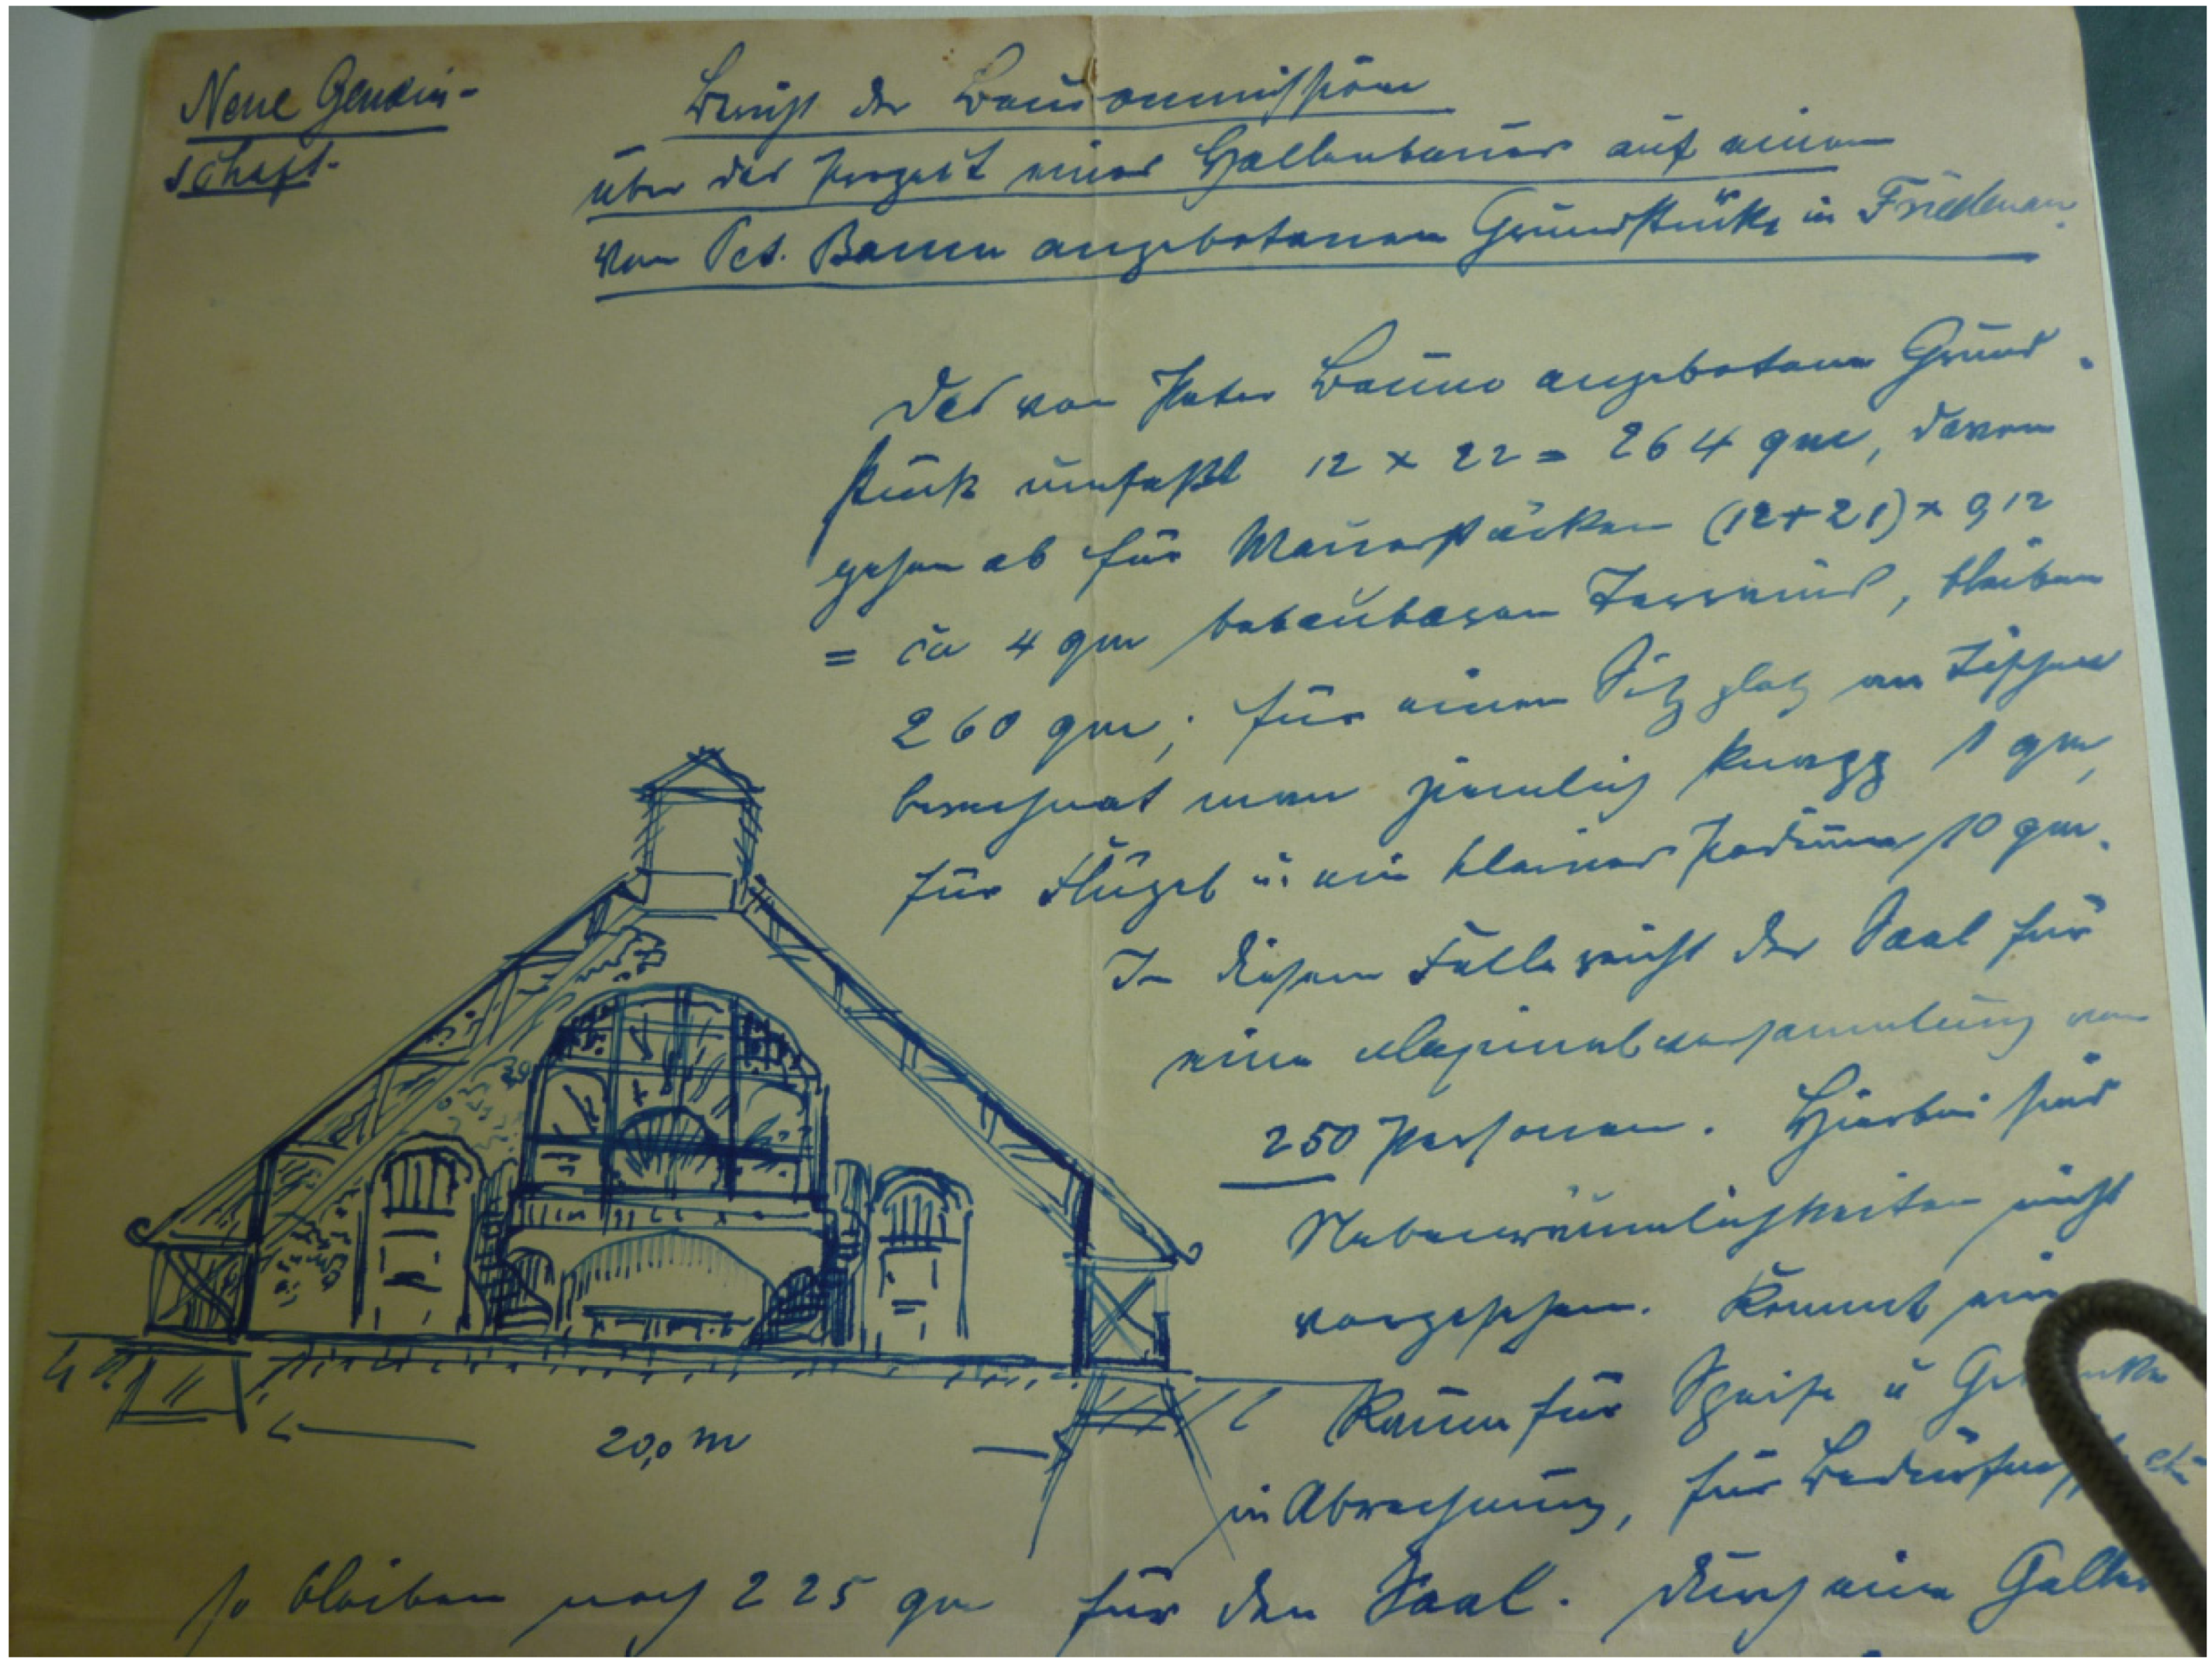 Neue Gemein-
schaft.
Bericht der Baucommission
über das Projekt eines Hallenbaues auf einem
von Pet. Baum angebotenen Grundstücke in Friedenau.
Das von Peter Baum angebotene Grund-
stück umfaßt 12 x 22 = 264 qm, davon
gehen ab für Mauerstärken (12+21) x 0,12
= ca 4 qm bebaubaren Terrains, bleiben
260 qm; für einen Sitzplatz an Tischen
berechnet man ziemlich knapp 1 qm,
für Flügel u. ein kleines Podium 10 qm.
In diesem Falle reicht der Saal für
eine Maximalversammlung von
250 Personen. Hierbei sind
Nebenräumlichkeiten nicht
vorgesehen. Kommt ein
Raum für Speise u
in Abrechnung, für
so bleiben noch 225 qm für den Saal. Durch eine
20,0 m